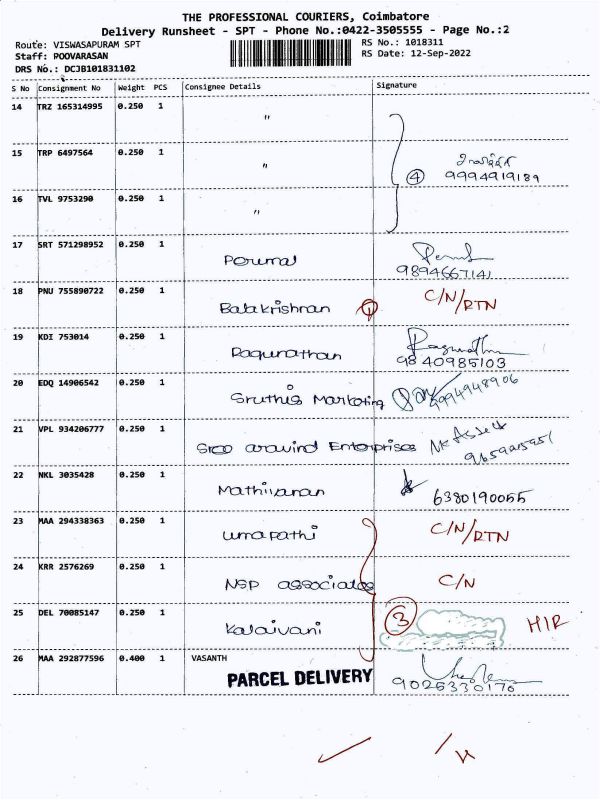 THE PROFESSIONAL COURIERS, Coimbatore
Delivery Runsheet - SPT - Phone No.:0422-3505555 - Page No.:2
Route: VISWASAPURAM SPT
RS No.: 1018311
Staff: POOVARASAN
RS Date: 12-Sep-2022
DRS No.: DCJB101831102
S No Consignment No Weight PCS Consignee Details Signature
14 TRZ 165314995 0.250 1 "
15 TRP 6497564 0.250 1 " ④ 9994919189
16 TVL 9753290 0.250 1 "
17 SRT 571298952 0.250 1 Perumal
9894667141
18 PNU 755890722 0.250 1 Balakrishnan ① C/N/RTN
19 KDI 753014 0.250 1 Ragunathan Ragunathan
9840985103
20 EDQ 14906542 0.250 1 Sruthis Marketing 9994948906
21 VPL 934206777 0.250 1 Sree aravind Enterprises
22 NKL 3035428 0.250 1 Mathivanan 6380190055
23 MAA 294338363 0.250 1 Umapathi C/N/RTN
24 KRR 2576269 0.250 1 NSP associates C/N
25 DEL 70085147 0.250 1 Kalaivani ③ HIR
26 MAA 292877596 0.400 1 VASANTH
PARCEL DELIVERY 9025330170